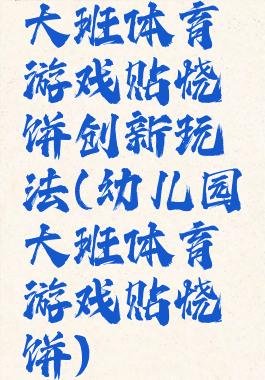 大班体育
游戏贴烧
饼创新玩
法(幼儿园
大班体育
游戏贴烧
饼)